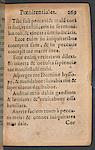 Pœnitentiales. 269
Tibi soli peccavi & malũ coram
te feci: ut justificeris in sermonibus
tuis, & vincas cum judicaris.
Ecce enim in iniquitatibus
conceptus sum, & in peccatis
concepit me mater mea.
Ecce enim veritatem dilexisti:
incerta & occulta sapientiæ
tuæ manifestasti mihi.
Asperges me Domine hyssopo,
& mundabor: lavabis me,
& super nivem dealbabor.
Auditui meo dabis gaudium
& lætitiam: & exultabunt ossa
humiliata.
Averte faciem tuam à peccatis
meis: & omnes iniquitates
meas dele.
Cor